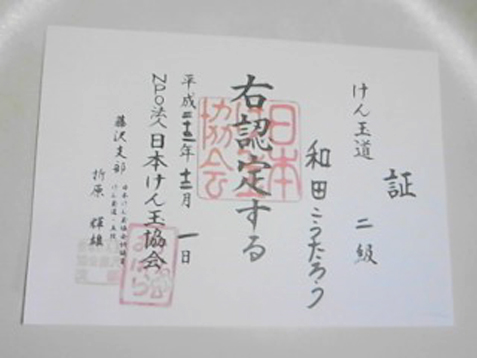 証
けん玉道 二級
和田こうたろう
右認定する
平成二十二年十二月一日
NPO法人日本けん玉協会
藤沢支部
折原 輝雄
日本
協会